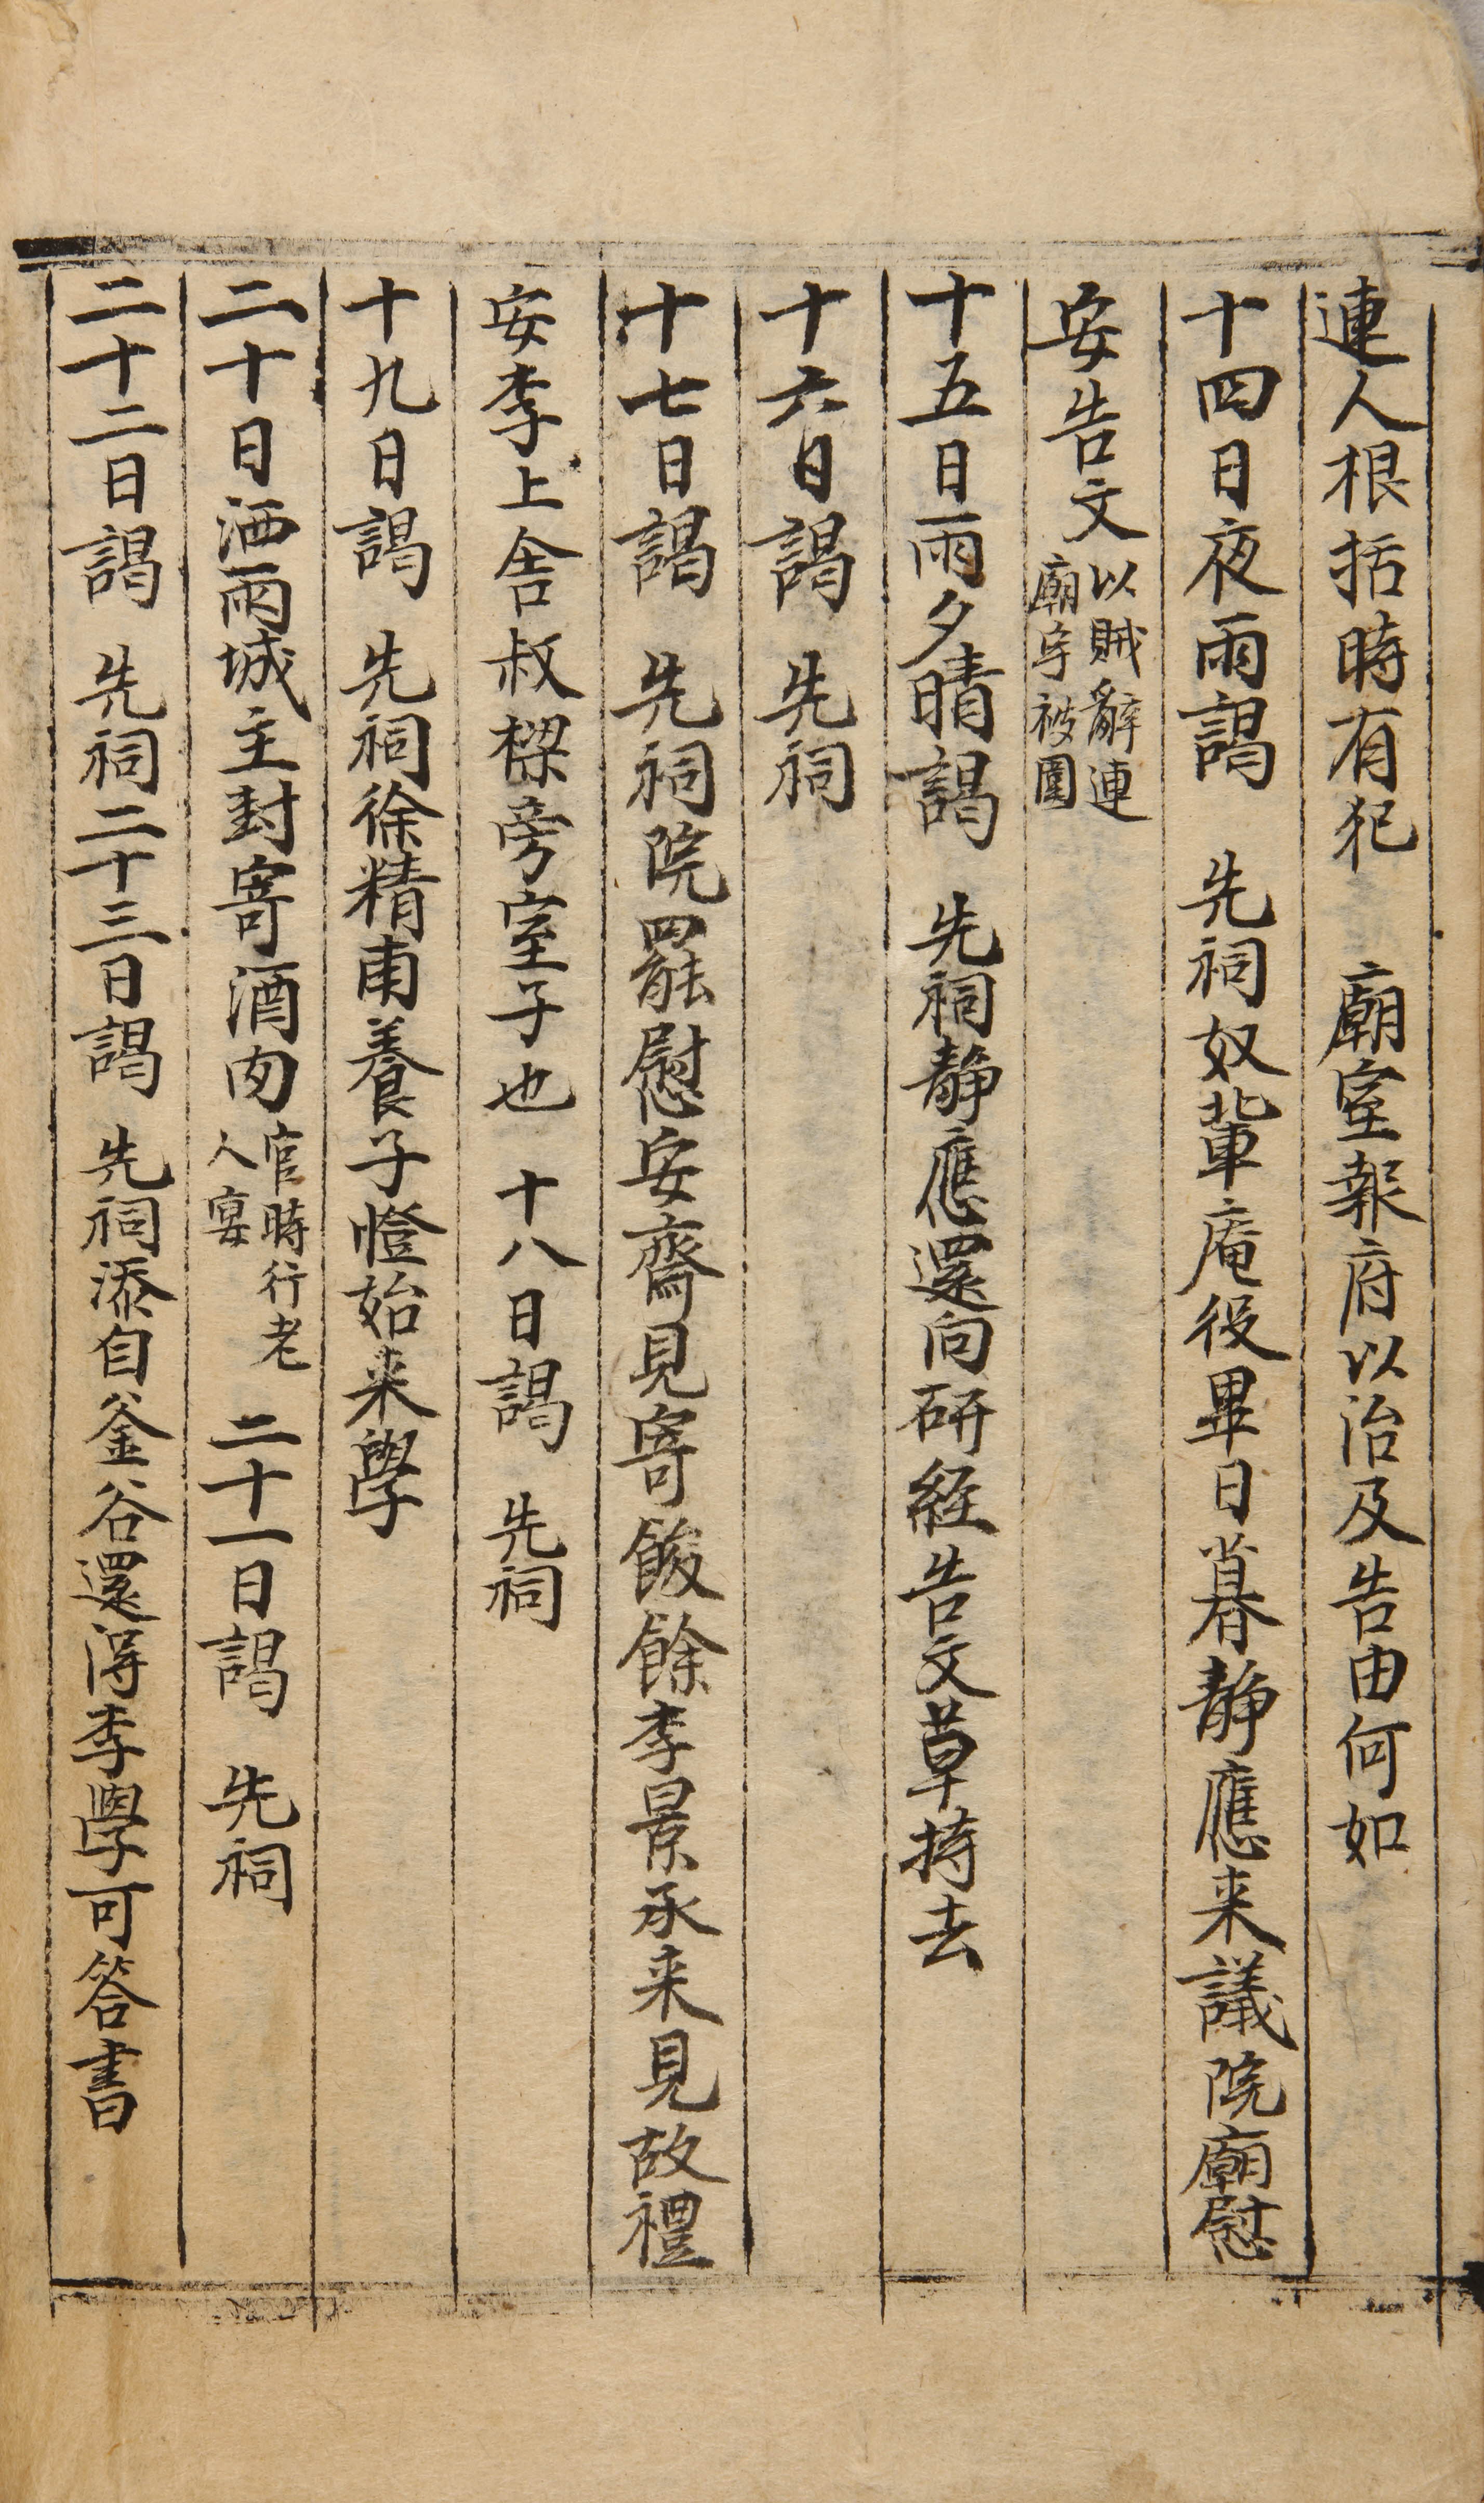 連人根括時有犯 廟室報府以治及告由何如
十四日夜雨謁 先祠奴輩庵役畢日暮靜應来議院廟慰
安告文
以賊辭連
廟宇被圍
十五日雨夕晴謁 先祠靜應還向硏經告文草持去
十六日謁 先祠
十七日謁 先祠院罷慰安齋見寄餕餘李景承来見故禮
安李上舍叔樑旁室子也 十八日謁 先祠
十九日謁 先祠徐精甫養子憕始来學
二十日洒雨城主封寄酒肉
官時行老
人宴
二十一日謁 先祠
二十二日謁 先祠二十三日謁 先祠添自釜谷還得李學可答書